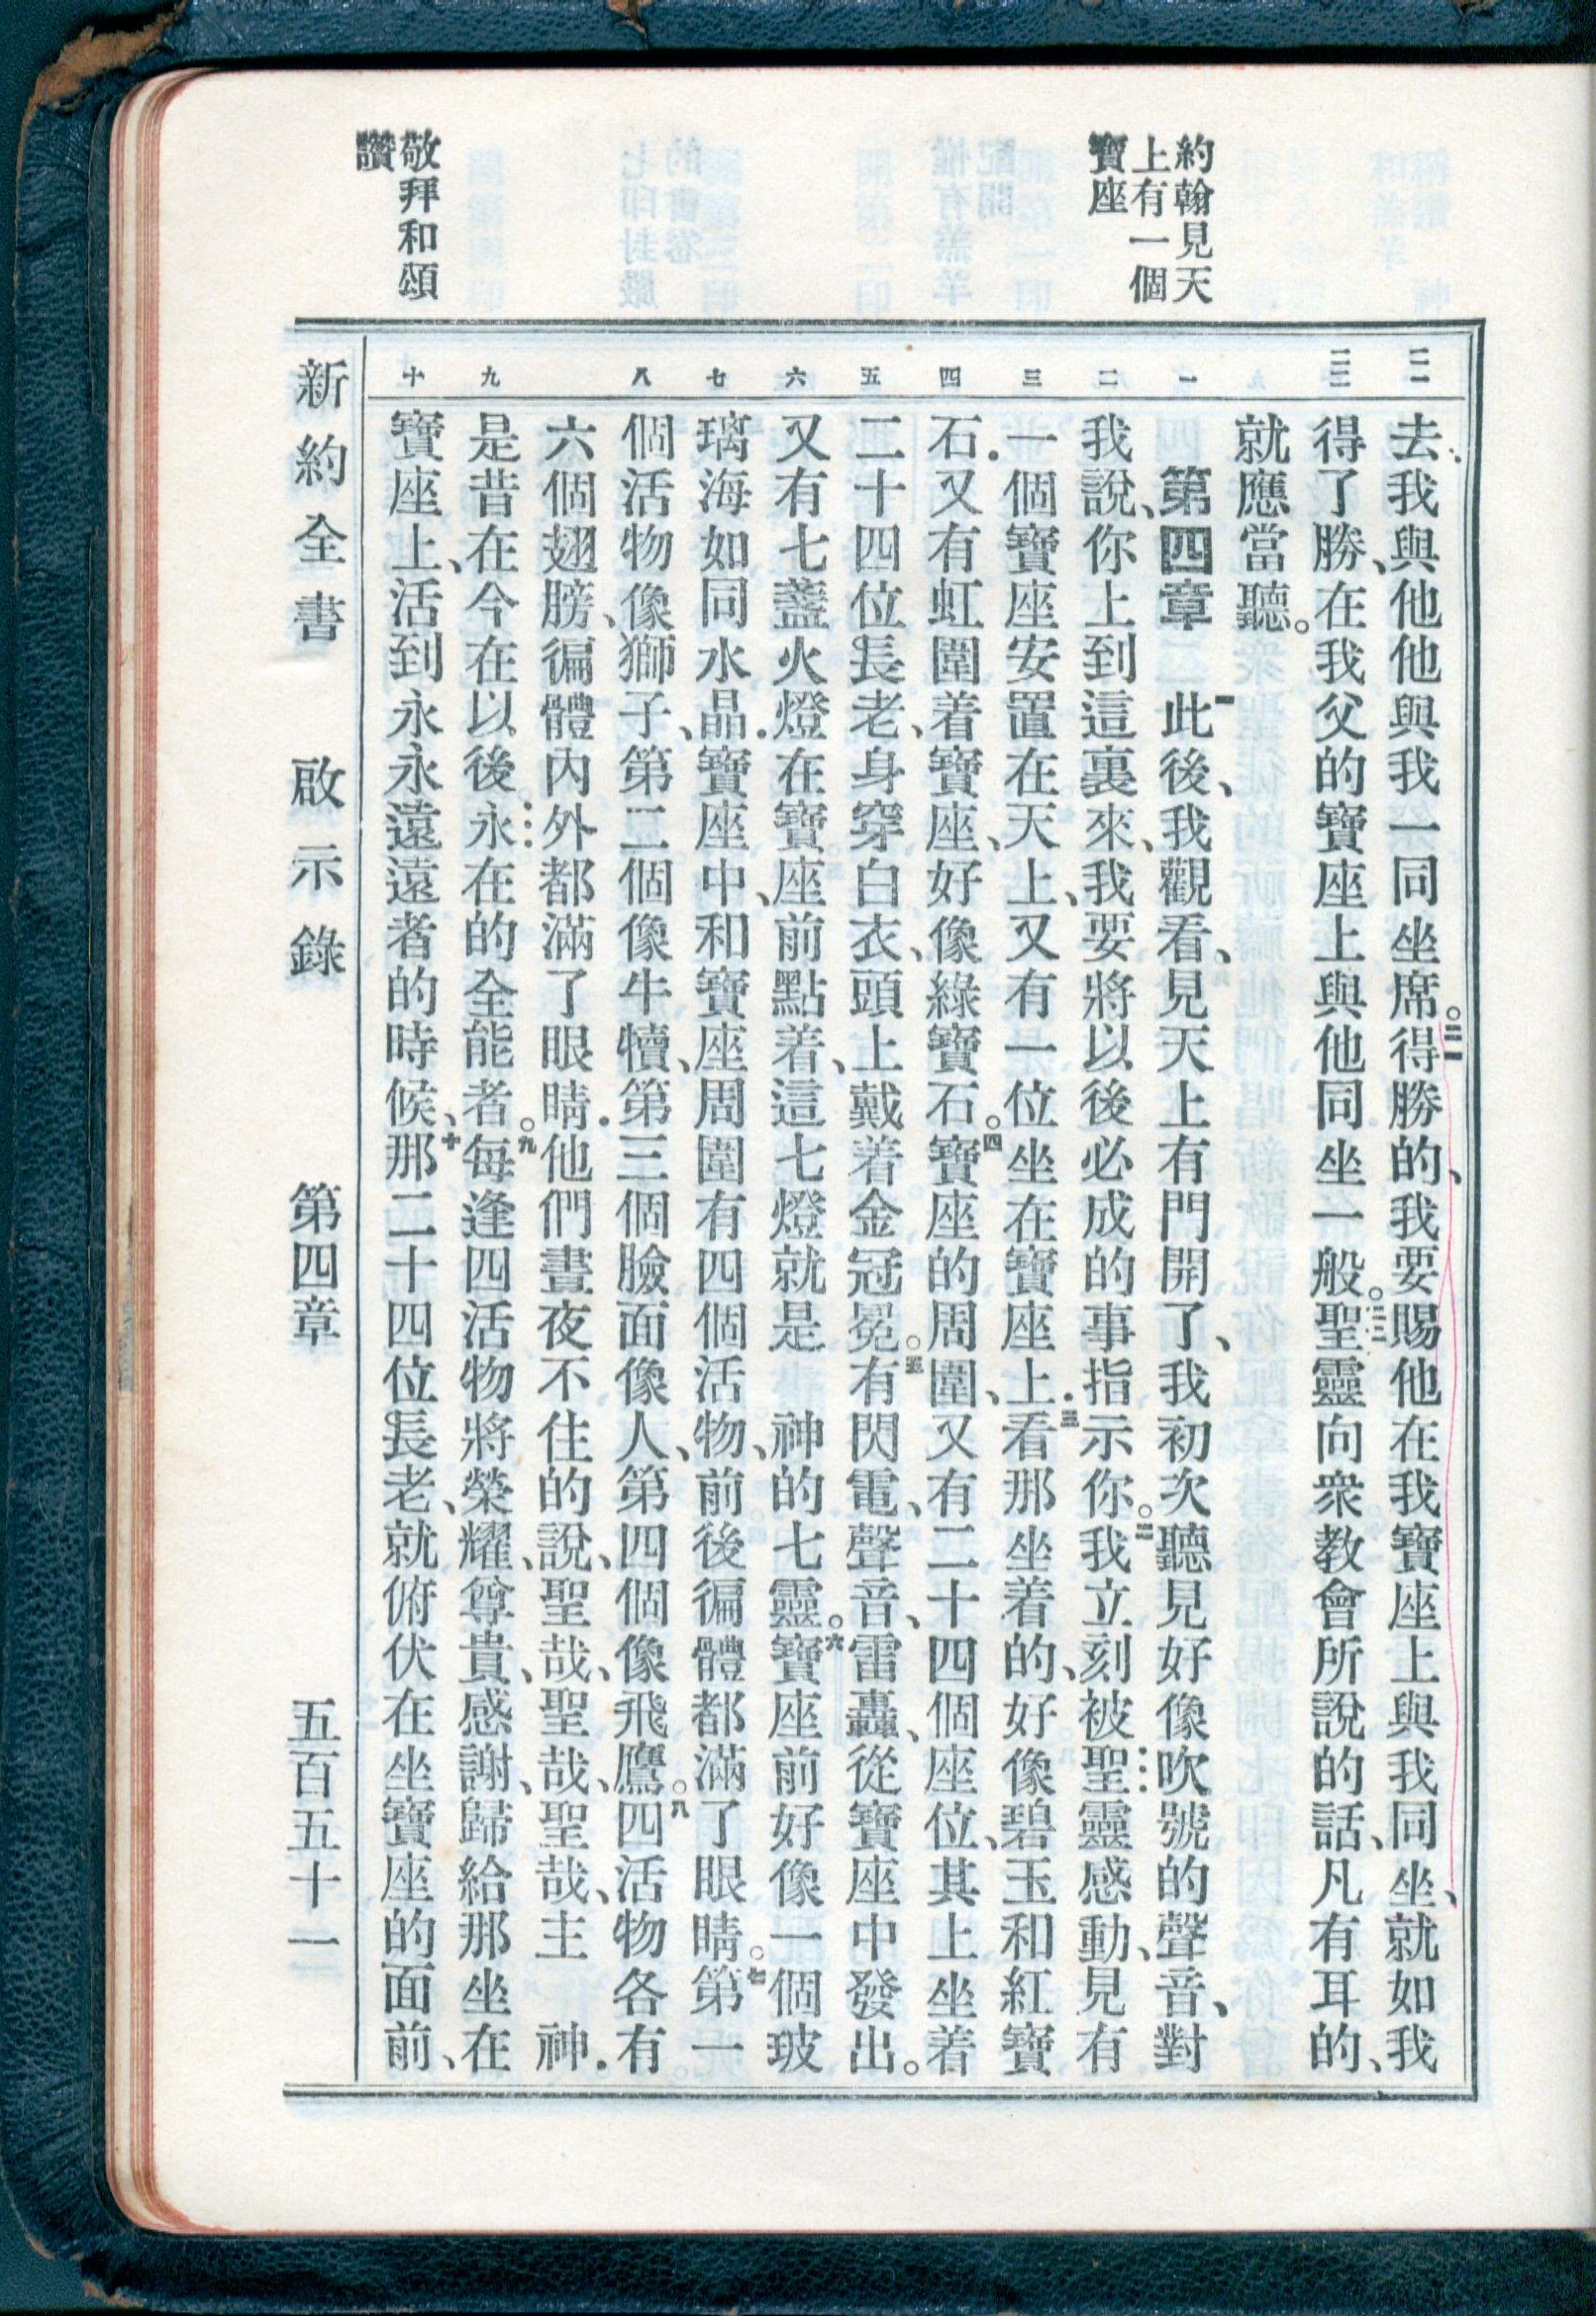 約翰見天
上有一個
寶座
敬拜和頌
讚
二一
二二
一
二
三
四
五
六
七
八
九
十
去、我與他他與我一同坐席。二一得勝的、我要賜他在我寶座上與我同坐、就如我
得了勝、在我父的寶座上與他同坐一般。二二聖靈向衆教會所說的話、凡有耳的、
就應當聽。
第四章 一此後、我觀看、見天上有門開了、我初次聽見好像吹號的聲音、對
我說、你上到這裏來、我要將以後必成的事指示你。二我立刻被聖靈感動、見有
一個寶座安置在天上、又有一位坐在寶座上.三看那坐着的、好像碧玉和紅寶
石.又有虹圍着寶座、好像綠寶石。四寶座的周圍、又有二十四個座位、其上坐着
二十四位長老、身穿白衣、頭上戴着金冠冕。五有閃電、聲音、雷轟、從寶座中發出。
又有七盞火燈在寶座前點着、這七燈就是 神的七靈。六寶座前好像一個玻
璃海如同水晶.寶座中、和寶座周圍有四個活物、前後徧體都滿了眼睛。七第一
個活物像獅子、第二個像牛犢、第三個臉面像人、第四個像飛鷹。八四活物各有
六個翅膀、徧體內外都滿了眼睛.他們晝夜不住的說、聖哉、聖哉、聖哉、主 神.
是昔在今在以後永在的全能者。九每逢四活物將榮耀、尊貴、感謝、歸給那坐在
寶座上、活到永永遠遠者的時候、十那二十四位長老、就俯伏在坐寶座的面前、
新約全書 啟示錄 第四章 五百五十一